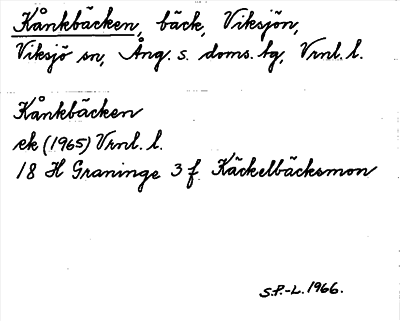 Kånkbäcken, bäck, Viksjön,
Viksjö sn, Ång. s. doms. tg, Vrnl. l.
Kånkbäcken
ek (1965) Vrnl. l.
18 H Graninge 3 f Käckelbäcksmon
S.P.-L. 1966.